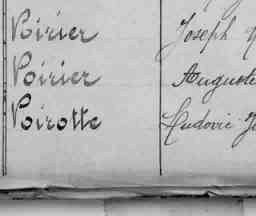 Poirier Joseph
Poirier Auguste
Poirotte Ludovic